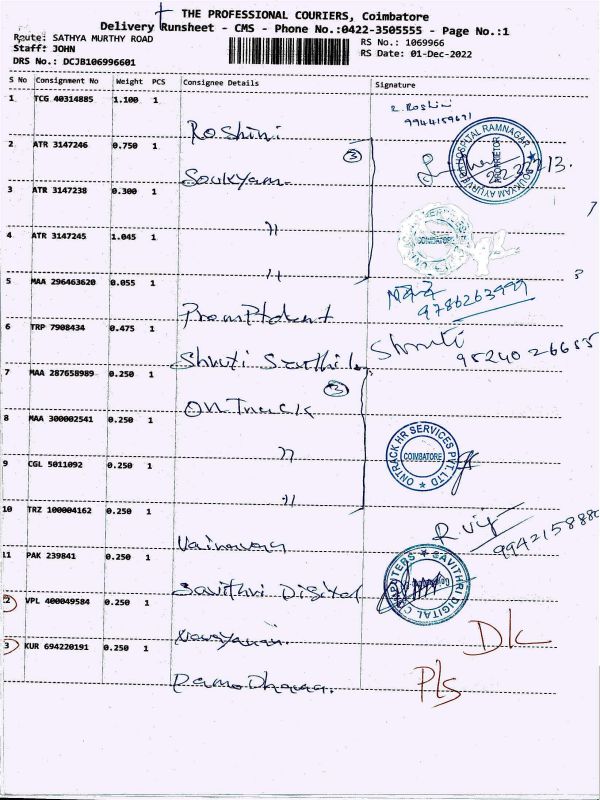 THE PROFESSIONAL COURIERS, Coimbatore
Delivery Runsheet - CMS - Phone No.:0422-3505555 - Page No.:1
Route: SATHYA MURTHY ROAD
RS No.: 1069966
Staff: JOHN
RS Date: 01-Dec-2022
DRS No.: DCJB106996601
S No Consignment No Weight PCS Consignee Details Signature
1 TCG 40314885 1.100 1 Roshini
R. Roshini
9944159671
2 ATR 3147246 0.750 1 Soukyam (3)
SOUKYAM AYURVEDA HOSPITAL RAMNAGAR
PROPRIETOR
3 ATR 3147238 0.300 1 "
4 ATR 3147245 1.045 1 "
COIMBATORE
5 MAA 296463620 0.055 1 Promptdent
9786263999
6 TRP 7908434 0.475 1 Shruti
Shruti
95240 26655
7 MAA 287658989 0.250 1 Ontrack (3)
8 MAA 300002541 0.250 1 "
ONTRACK HR SERVICES PVT. LTD
COIMBATORE
9 CGL 5011092 0.250 1 "
10 TRZ 100004162 0.250 1
9942158880
11 PAK 239841 0.250 1 Savithri Digital
SAVITHRI DIGITAL COMPUTERS
12 VPL 400049584 0.250 1 Narayanan.
DL
13 KUR 694220191 0.250 1 Damodharan.
Pls